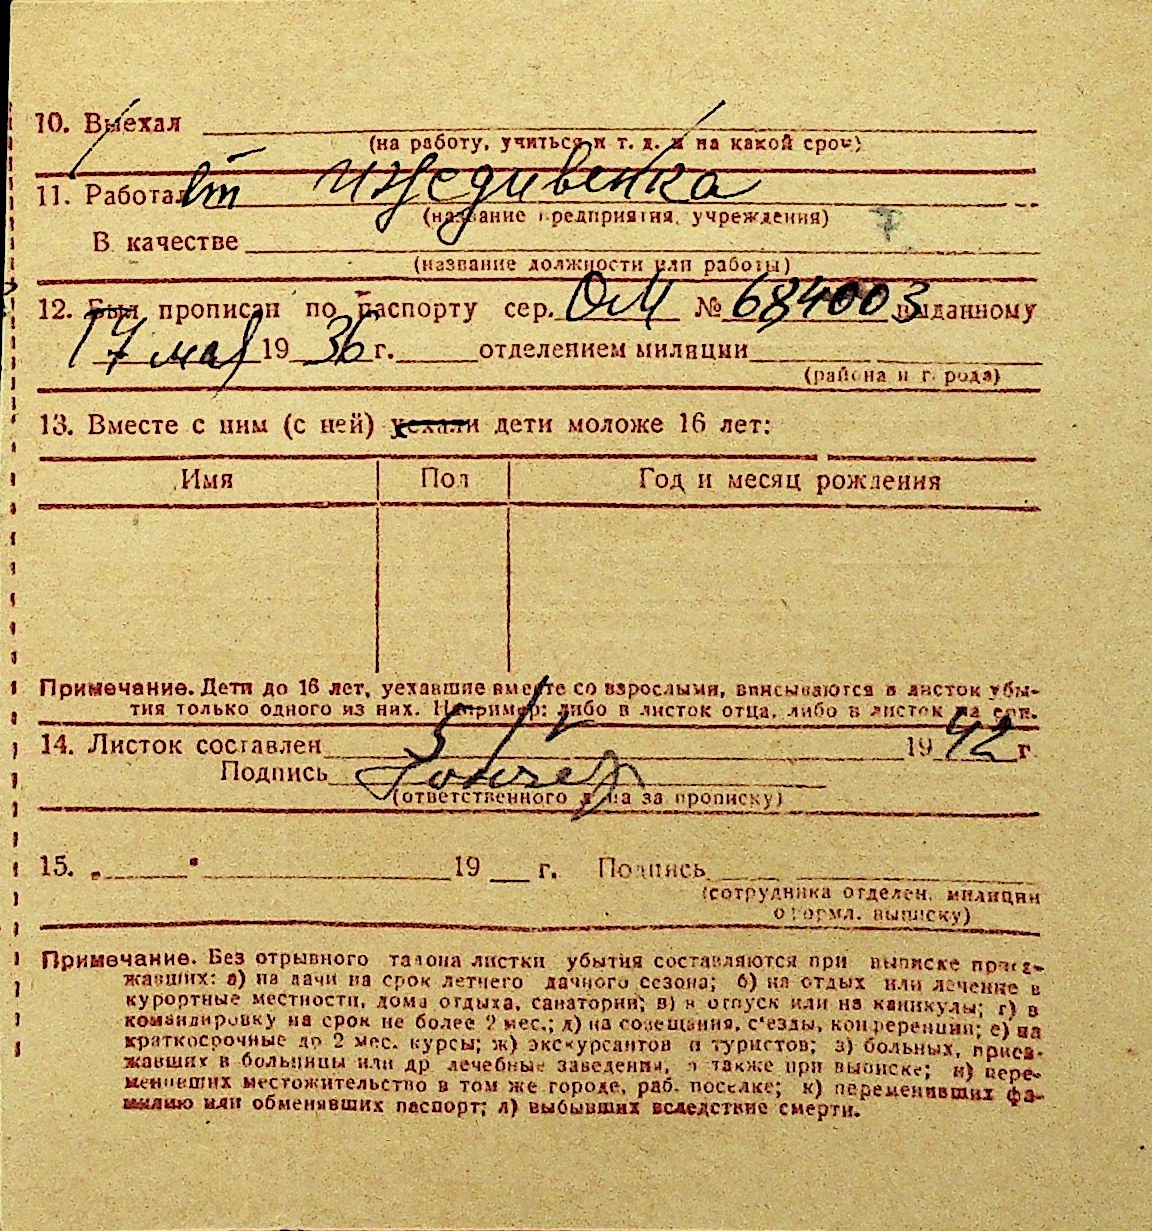 10. Выехал
(на работу, учиться и т. д. и на какой срок)
11. Работал ст иждивенка
(название предприятия, учреждения)
В качестве
(название должности или работы)
12. Был прописан по паспорту сер. ОМ № 684003 выданному
17 мая 1936 г. отделением милиции
(района и города)
13. Вместе с ним (с ней) уехали дети моложе 16 лет:
Имя Пол Год и месяц рождения
Примечание. Дети до 16 лет, уехавшие вместе со взрослыми, вписываются в листок убы-
тия только одного из них. Например: либо в листок отца, либо в листок
14. Листок составлен 5/V 1942 г
Подпись
(ответственного лица за прописку)
15. „ " 19 г. Подпись
(сотрудника отделен. милиции
оформл. выписку)
Примечание. Без отрывного талона листки убытия составляются при выписке приез-
жавших: а) на дачи на срок летнего дачного сезона; б) на отдых или лечение в
курортные местности, дома отдыха, санатории; в) в отпуск или на каникулы; г) в
командировку на срок не более 2 мес.; д) на совещания, с'езды, конференции; е) на
краткосрочные до 2 мес. курсы; ж) экскурсантов и туристов; з) больных, приез-
жавших в больницы или др лечебные заведения, а также при выписке; и) пере-
менивших местожительство в том же городе, раб. поселке; к) переменивших фа-
милию или обменявших паспорт; л) выбывших вследствие смерти.